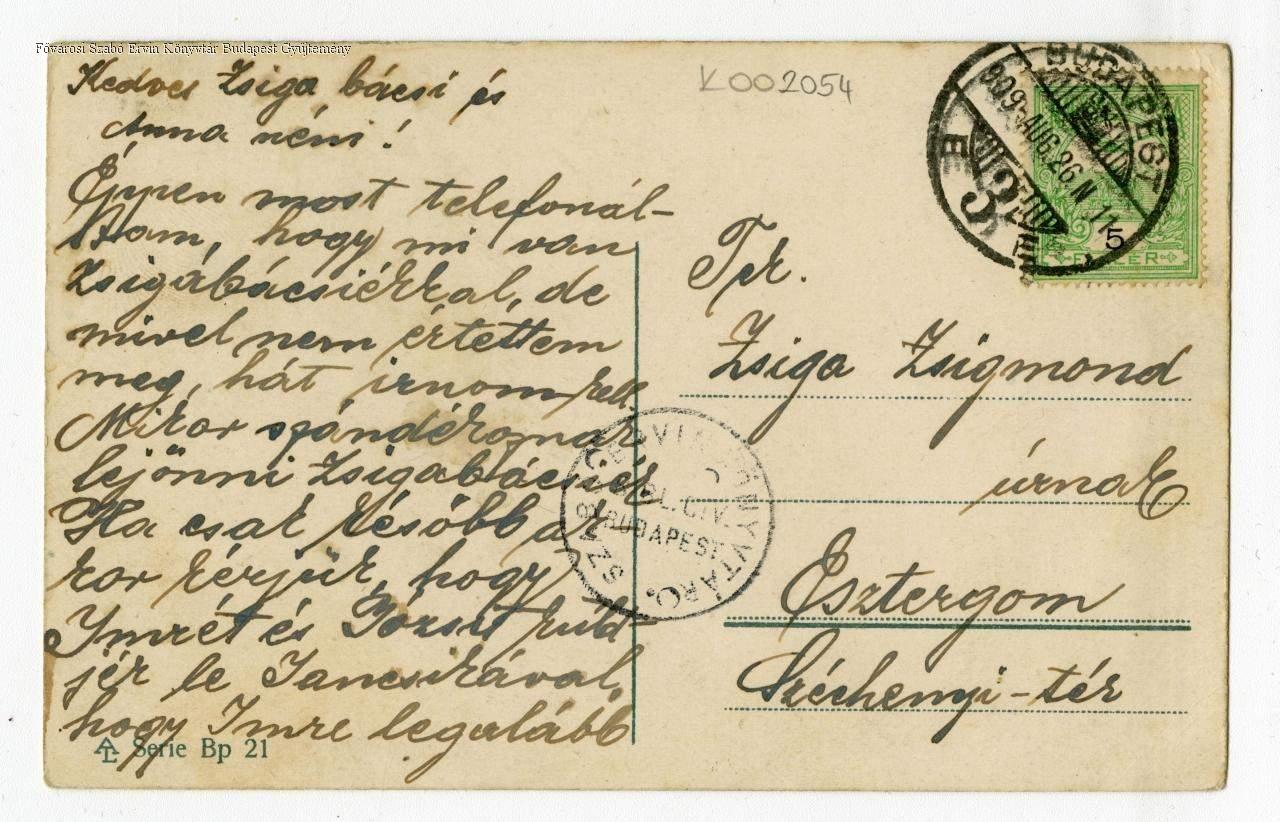 Fővárosi Szabó Ervin Könyvtár Budapest Gyűjtemény
K002054
Kedves Zsiga bácsi és
Anna néni!
Éppen most telefonál-
tam, hogy mi van
Zsigabácsiékkal, de
mivel nem értettem
meg, hát irnom kell.
Mikor szándékoznak
lejönni Zsigabácsiék
Ha csak később ak
kor kérjük, hogy
Imrét és Józsit küld-
jék le Jancsikával,
hogy Imre legalább
Serie Bp 21
BUDAPEST
909 AUG. 26. N 11
3
5
FILLÉR
Tek.
Zsiga Zsigmond
úrnak
Esztergom
Széchenyi-tér
BUDAPEST